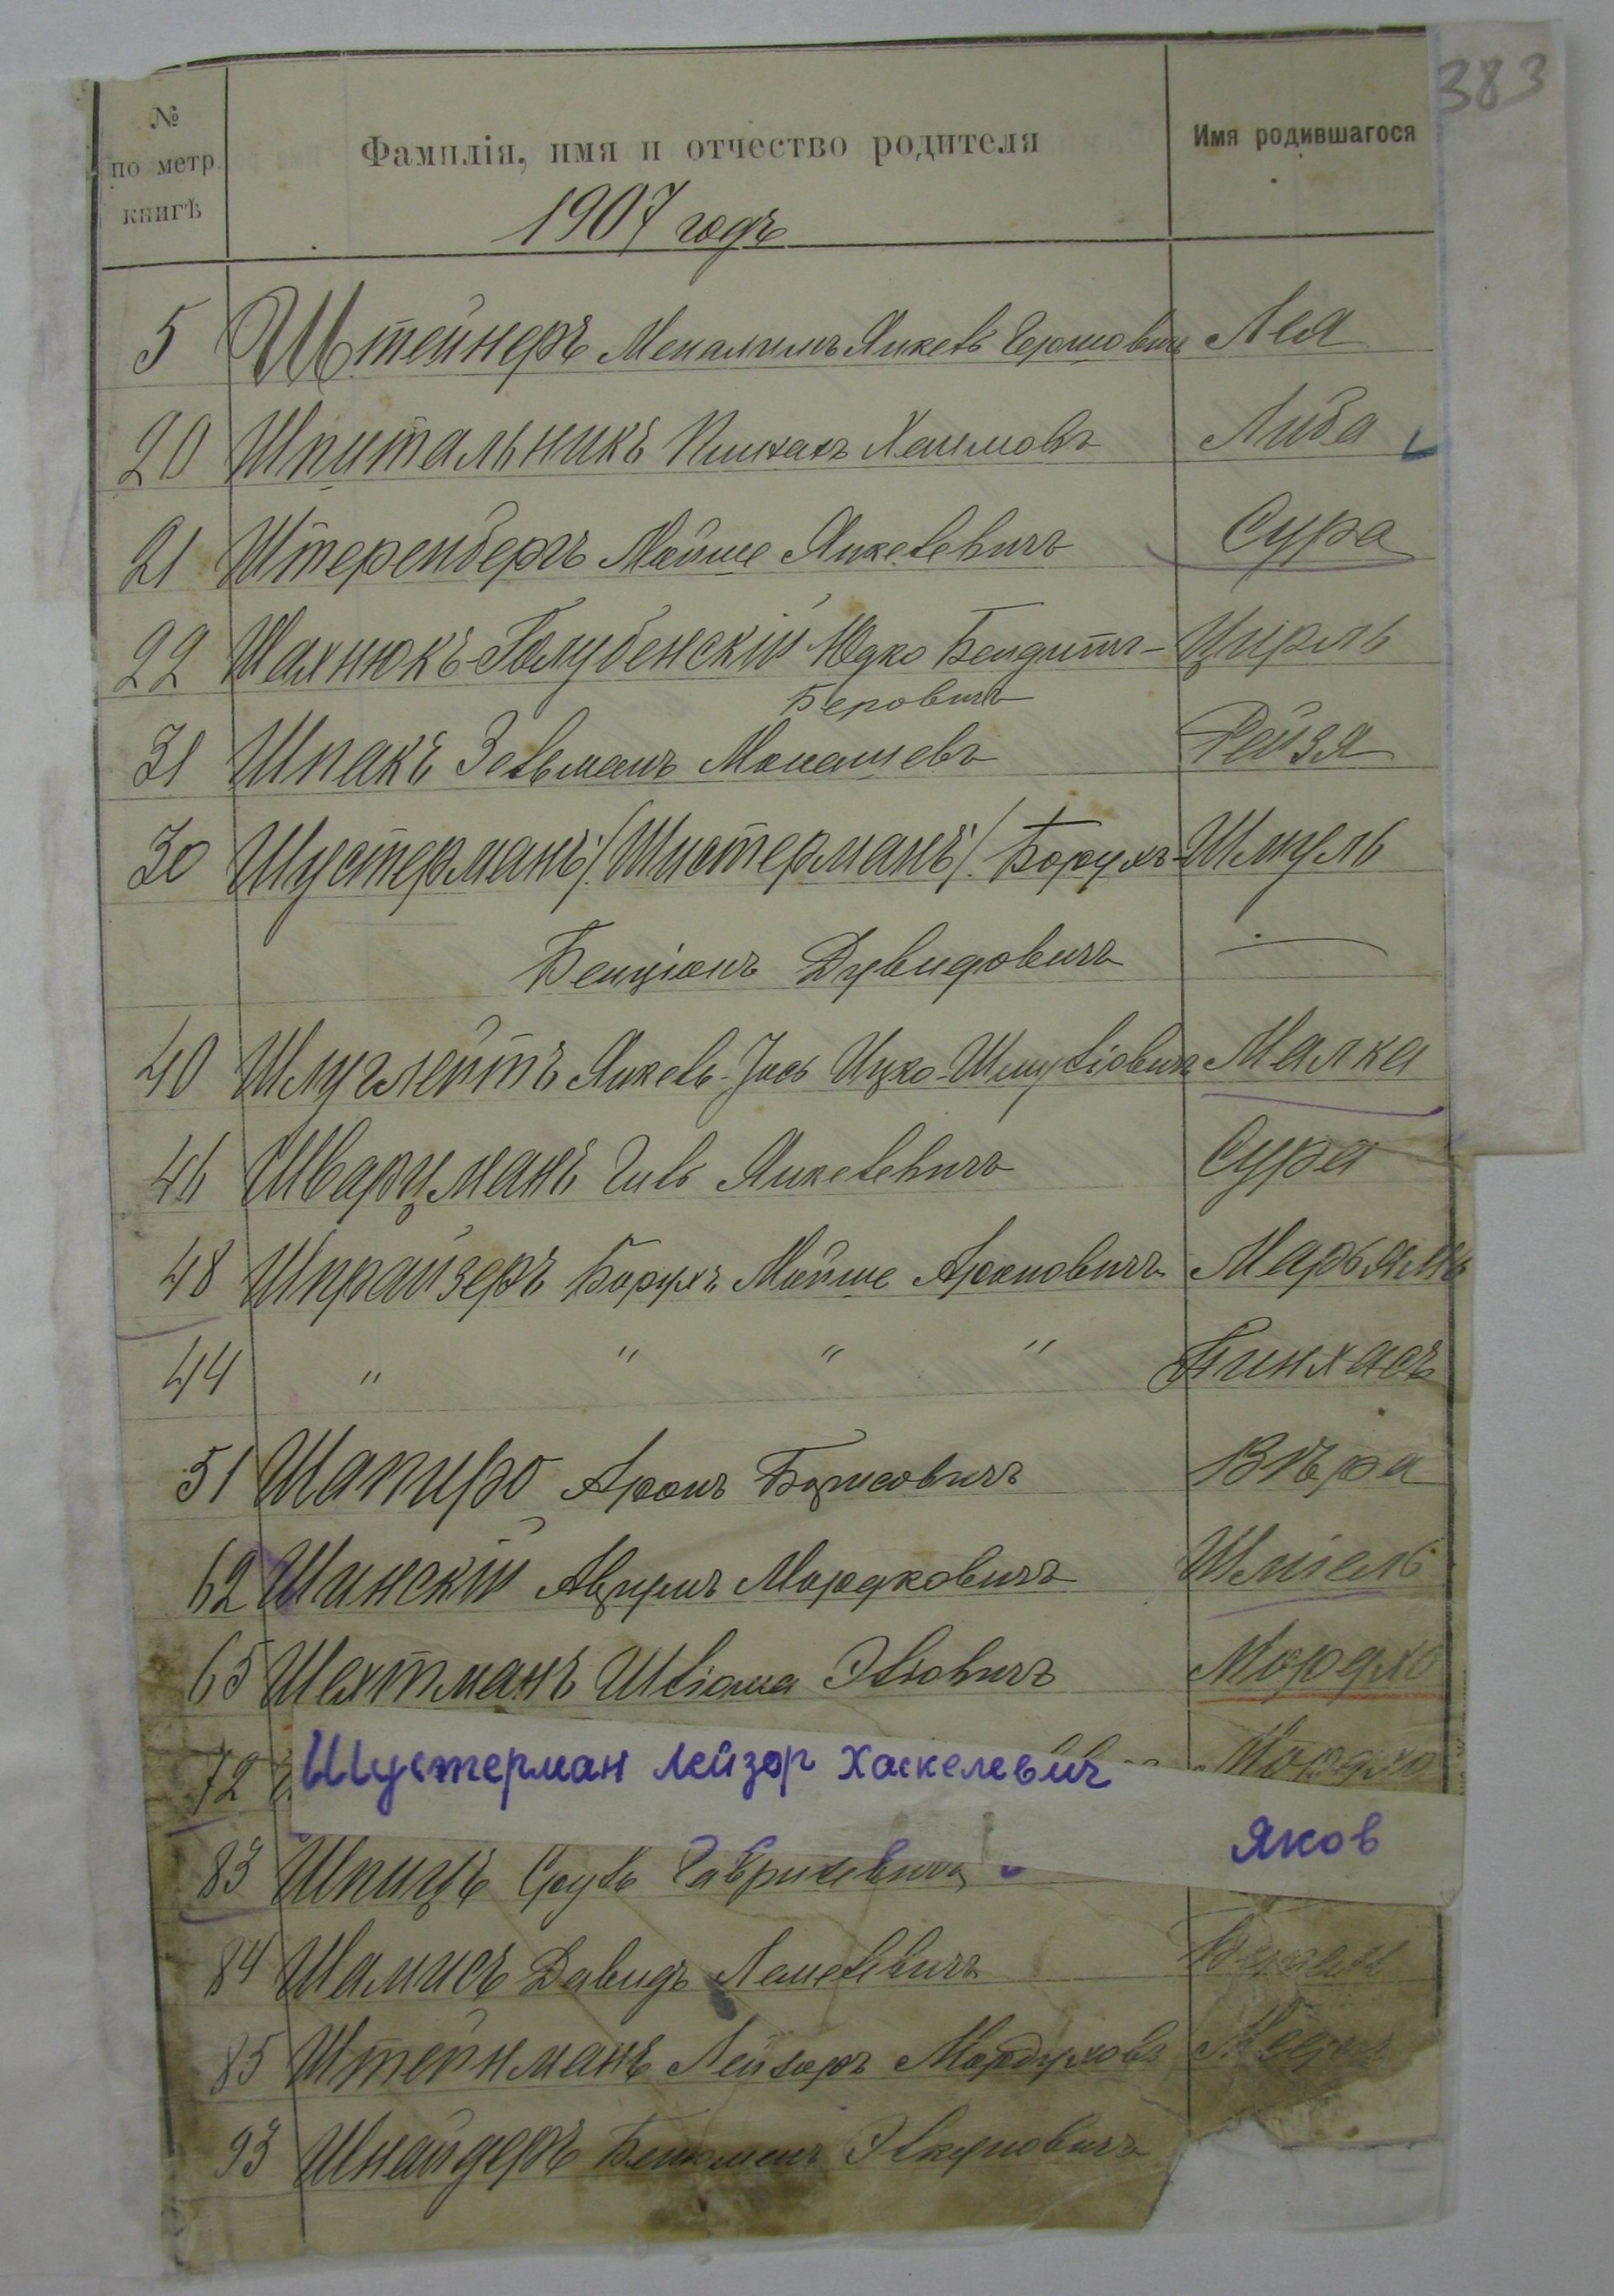 383
№ по метр. книгѣ Фамилія, имя и отчество родителя Имя родившагося
1907 годъ
5 Штейнеръ Янкель Гершовичъ Лея
20 Шпитальникъ Пинхасъ Хаимовъ Либа
21 Штеренбергъ Мойше Янкелевичъ Сура
22 Шахнюкъ-Голубенскій Юдко Бендитъ- Цирль
Беровичъ
31 Шпакъ Зельманъ Монашевъ Рейзя
30 Шустерманъ /Шистерманъ/ Борухъ- Шмуль
Бенціонъ Дувидовичъ
40 Янкель-Іось Ицко-Шмулiовичъ Малка
46 Шварцманъ Янкелевичъ Сура
48 Шпрайзеръ Борухъ Мойше Ароновичъ Марьямъ
44 " " " " Пинхасъ
51 Шапиро Аронъ Борисовичъ Вѣра
62 Шинскій Мордковичъ Шміель
65 Шехтманъ Шліома Эльовичъ Мордхо
72 Мордхо
Шустерман Лейзор Хаскелевич Яков
83 Шпицъ Сруль Гаврилевичъ
84 Шамисъ Давидъ
85 Штейнманъ Лейзоръ Мордуховъ
93 Шнайдеръ